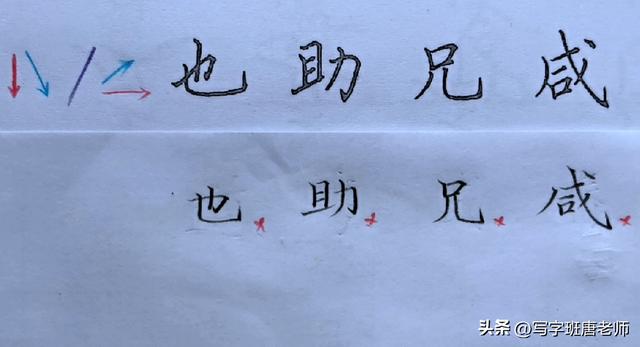 也助兄咸
也助兄咸
头条 @写字班唐老师